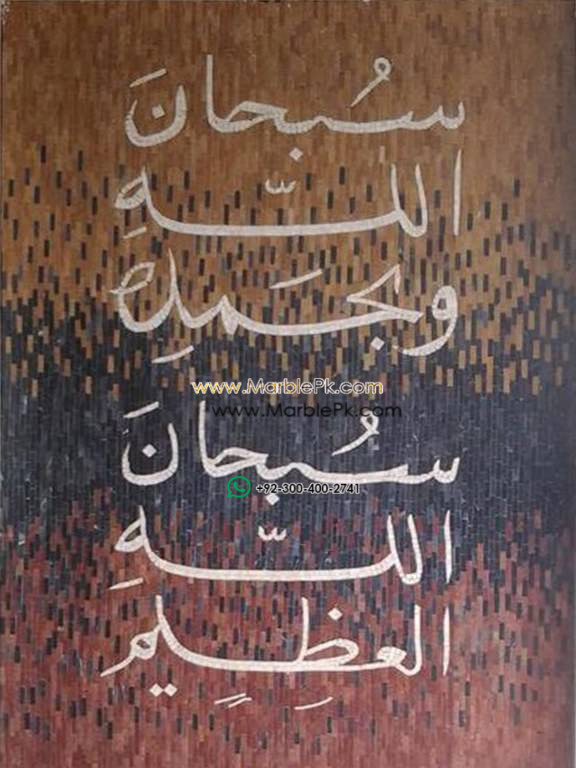 سُبحانَ
اللّهِ
وبحَمدِه
www.MarblePk.com
www.MarblePk.com
سُبحانَ
+92-300-400-2741
اللّهِ
العَظِيم